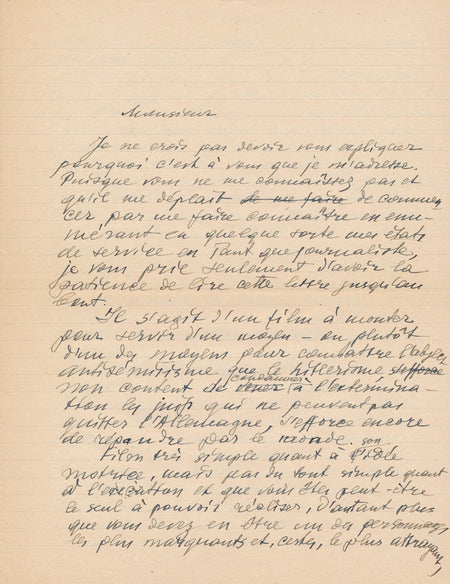 Monsieur
Je ne crois pas devoir vous expliquer
pourquoi c'est à vous que je m'adresse.
Puisque vous ne me connaissez pas et
qu'il me déplait de me faire de commen-
cer par me faire connaître en énu-
mérant en quelque sorte mes états
de service en tant que journaliste,
je vous prie seulement d'avoir la
patience de lire cette lettre jusqu'au
bout.
Il s'agit d'un film à monter
pour servir d'un moyen – ou plutôt
d'un des moyens pour combattre
antisémitisme que le hitlerisme s'efforce
condamner
non content de à l'extermina-
tion les juifs qui ne peuvent pas
quitter l'Allemagne, s'efforce encore
de répandre par le monde. son
Film très simple quant à l'idée
motrice, mais pas du tout simple quant
à l'exécution et que vous êtes peut-être
le seul à pouvoir réaliser, d'autant plus
que vous devez en être un des personnages
les plus marquants et, certes, le plus attrayant,